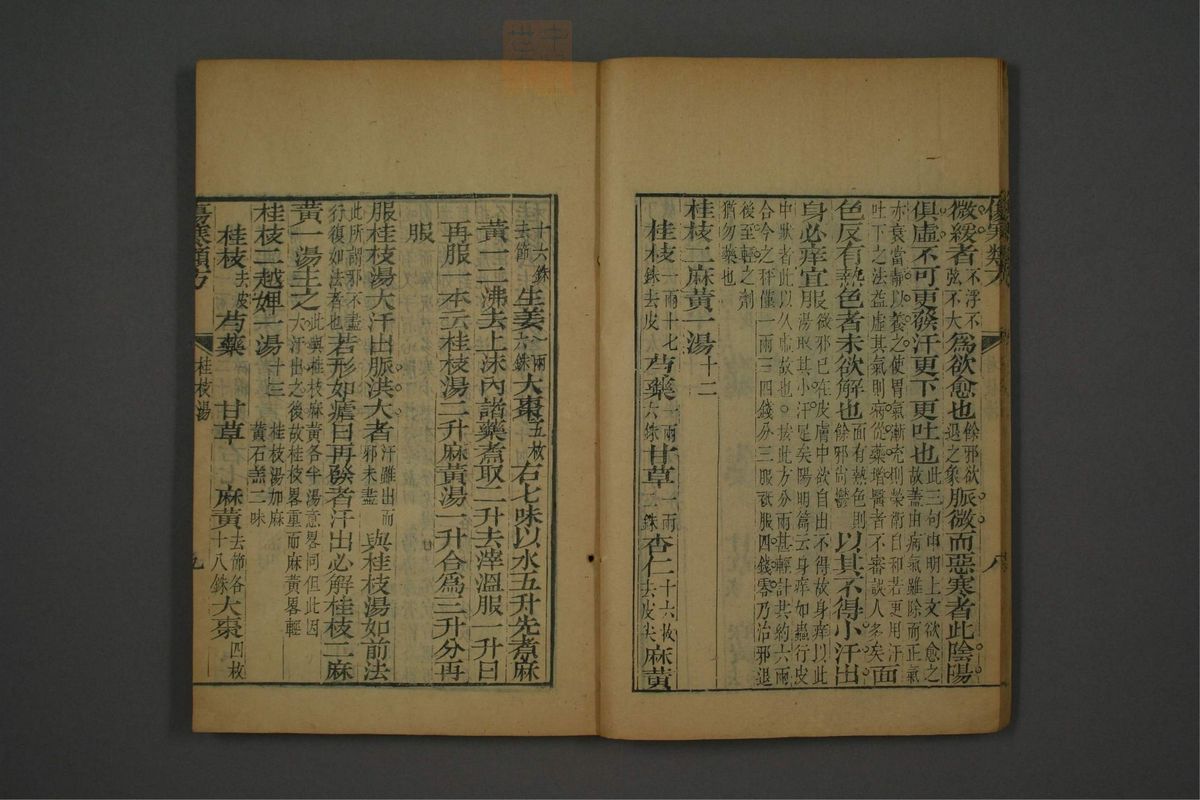 傷寒類方
八
微緩者不浮不弦不大為欲愈也餘邪欲退之象脈微而惡寒者此陰陽
俱虛不可更發汗更下更吐也此三句申明上文欲愈之故蓋由病氣雖除而正氣
亦衰當靜以養之使胃氣漸充則榮衛自和若更用汗吐下之法益虛其氣則病從藥增醫者不審誤人多矣面
色反有熱色者未欲解也面有熱色則餘邪尚鬱以其不得小汗出
身必痒宜服微邪已在皮膚中欲自出不得故身痒以此湯取其小汗足矣陽明篇云身痒如蟲行皮
中狀者此以久虛故也按此方分兩甚輕計共約六兩合今之秤僅一兩三四錢分三服只服四錢零乃治邪退
後至輕之劑猶勿藥也
桂枝二麻黃一湯十二
桂枝一兩十七銖去皮芍藥一兩六銖甘草一兩二銖杏仁十六枚去皮尖麻黃
十六銖去節生姜一兩六銖大棗五枚右七味以水五升先煮麻
黃一二沸去上沫內諸藥煮取二升去滓溫服一升日
再服一本云桂枝湯二升麻黃湯一升合為三升分再
服
服桂枝湯大汗出脈洪大者汗雖出而邪未盡與桂枝湯如前法
此所謂邪不盡行復如法者也若形如瘧日再發者汗出必解桂枝二麻
黃一湯主之此與桂枝麻黃各半湯意畧同但此因大汗出之後故桂枝畧重而麻黃畧輕
桂枝二越婢一湯十三桂枝湯加麻黃石羔二味
桂枝去皮芍藥甘草麻黃去節各十八銖大棗四枚
傷寒類方
桂枝湯
九